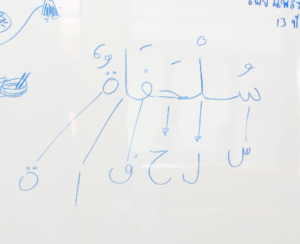 13
سُلْحَفَاةٌ
س ل ح ف ا ة